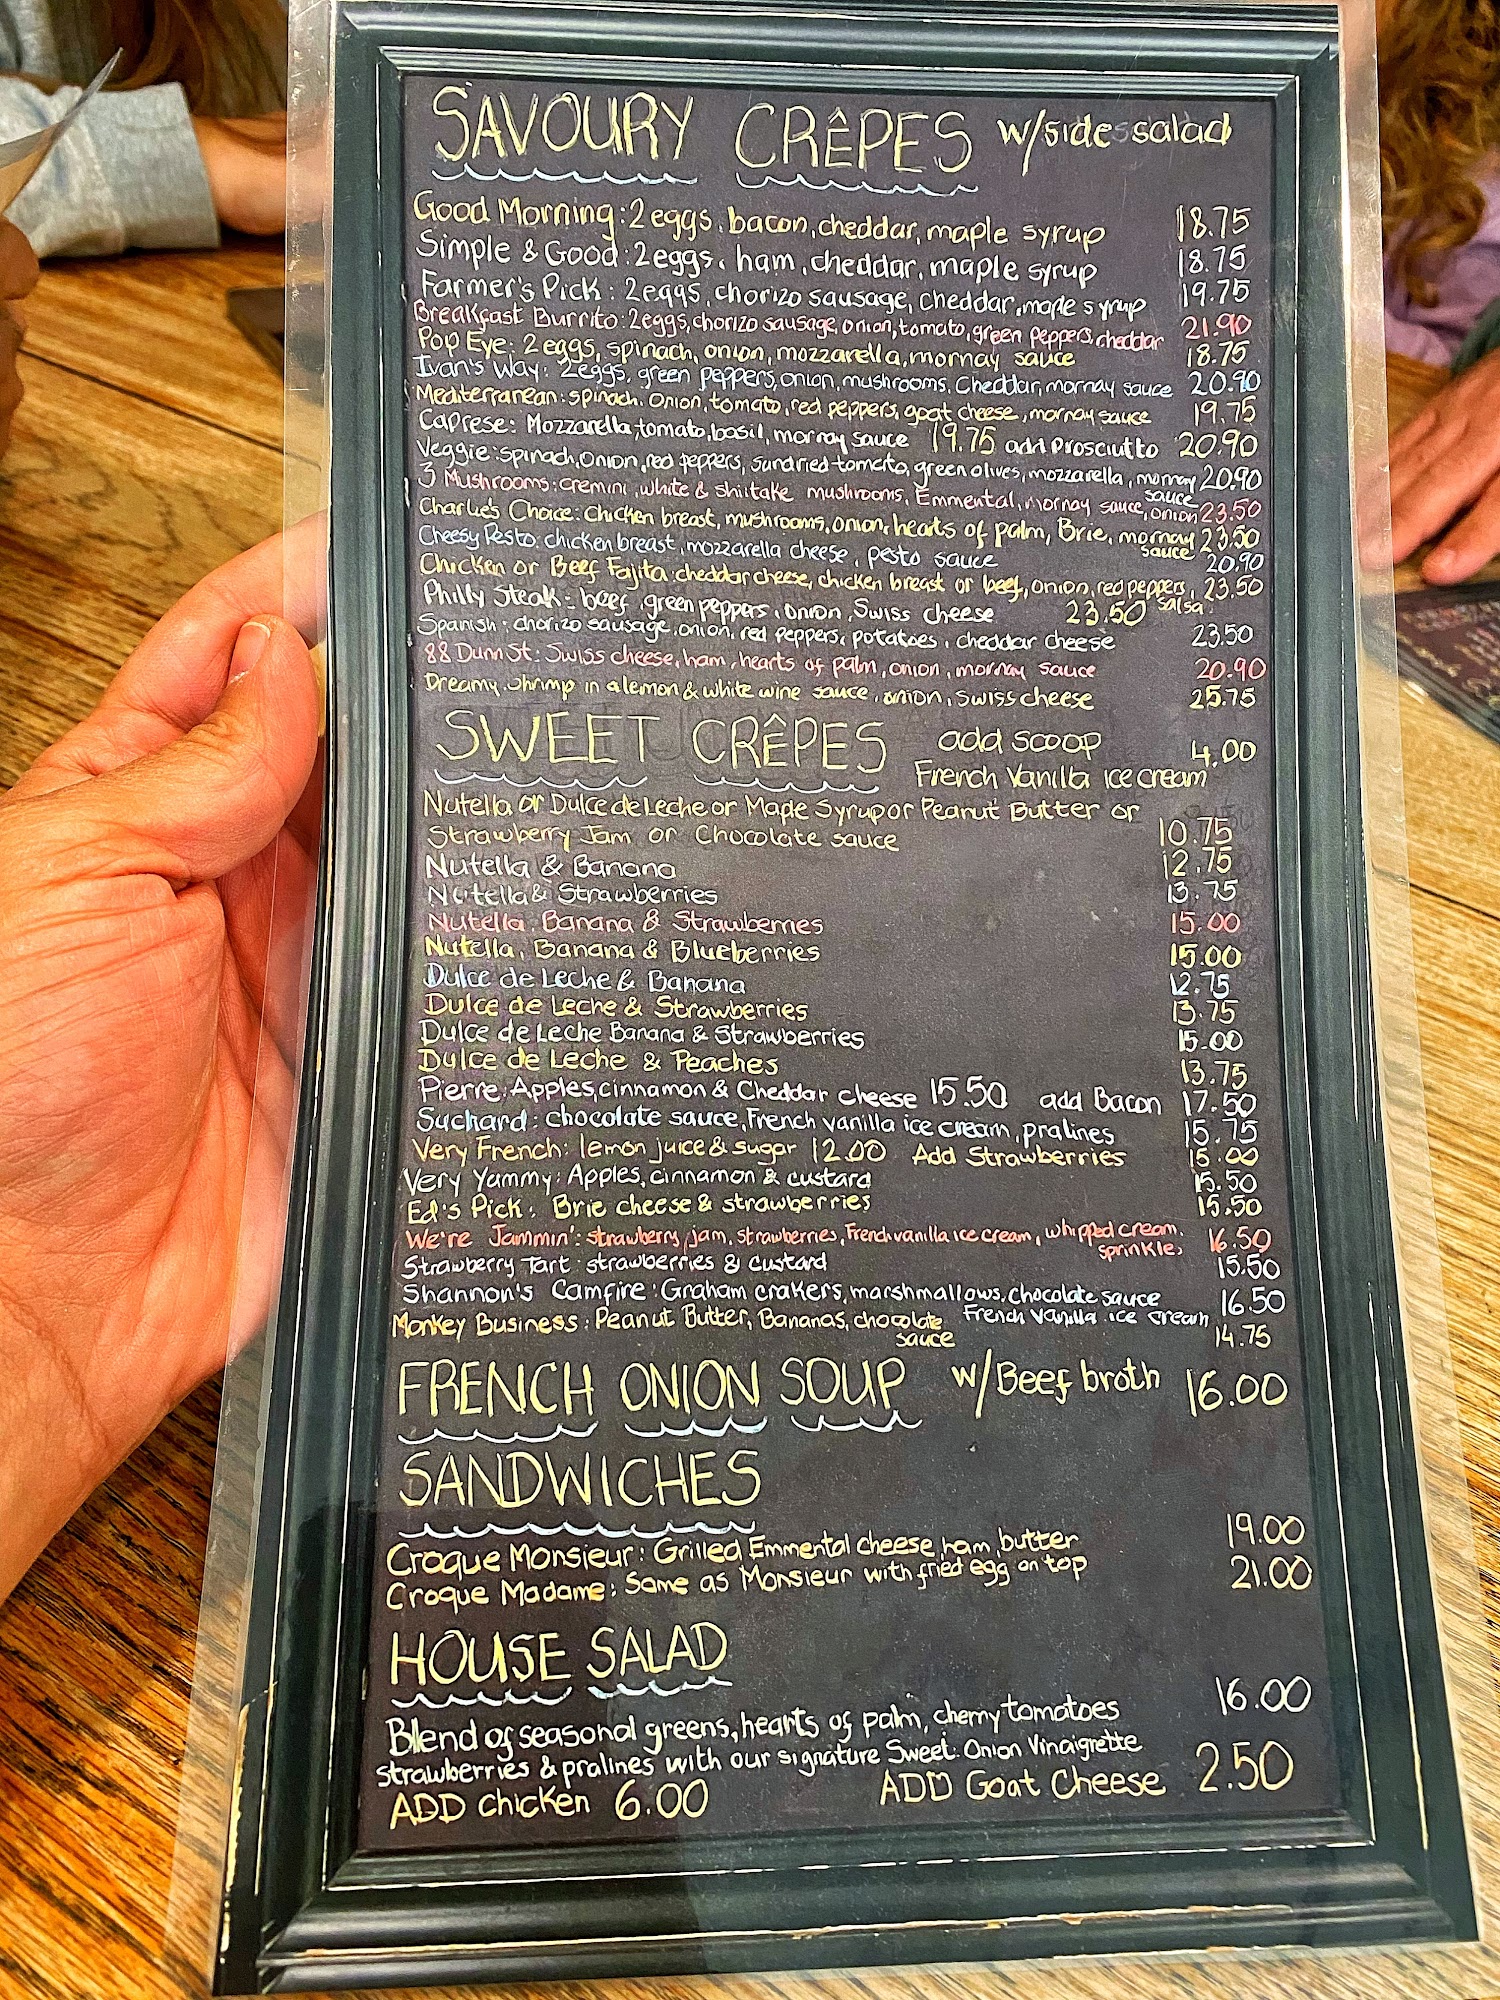 SAVOURY CRÊPES w/side salad
Good Morning: 2 eggs, bacon, cheddar, maple syrup 18.75
Simple & Good: 2 eggs, ham, cheddar, maple syrup 18.75
Farmer's Pick: 2 eggs, chorizo sausage, cheddar, maple syrup 19.75
Breakfast Burrito: 2 eggs, chorizo sausage, onion, tomato, green peppers, cheddar 21.90
Pop Eye: 2 eggs, spinach, onion, mozzarella, mornay sauce 18.75
Ivan's Way: 2 eggs, green peppers, onion, mushrooms, Cheddar, mornay sauce 20.90
Mediterranean: spinach, onion, tomato, red peppers, goat cheese, mornay sauce 19.75
Caprese: Mozzarella, tomato, basil, mornay sauce 19.75 add Prosciutto 20.90
Veggie: spinach, onion, red peppers, sundried tomato, green olives, mozzarella, mornay sauce 20.90
3 Mushrooms: cremini, white & shiitake mushrooms, Emmental, mornay sauce, onion 23.50
Charlie's Choice: chicken breast, mushrooms, onion, hearts of palm, Brie, mornay sauce 23.50
Cheesy Pesto: chicken breast, mozzarella cheese, pesto sauce 20.90
Chicken or Beef Fajita: cheddar cheese, chicken breast or beef, onion, red peppers, salsa 23.50
Philly Steak: beef, green peppers, onion, Swiss cheese 23.50
Spanish: chorizo sausage, onion, red peppers, potatoes, cheddar cheese 23.50
88 Dunn St: Swiss cheese, ham, hearts of palm, onion, mornay sauce 20.90
Dreamy shrimp in a lemon & white wine sauce, onion, swiss cheese 25.75
SWEET CRÊPES add scoop 4.00
French Vanilla ice cream
Nutella or Dulce de Leche or Maple Syrup or Peanut Butter or
Strawberry Jam or Chocolate sauce 10.75
Nutella & Banana 12.75
Nutella & Strawberries 13.75
Nutella, Banana & Strawberries 15.00
Nutella, Banana & Blueberries 15.00
Dulce de Leche & Banana 12.75
Dulce de Leche & Strawberries 13.75
Dulce de Leche Banana & Strawberries 15.00
Dulce de Leche & Peaches 13.75
Pierre: Apples, cinnamon & Cheddar cheese 15.50 add Bacon 17.50
Suchard: chocolate sauce, French vanilla ice cream, pralines 15.75
Very French: lemon juice & sugar 12.00 Add Strawberries 15.00
Very Yammy: Apples, cinnamon & custard 15.50
Ed's Pick: Brie cheese & strawberries 15.50
We're Jammin': strawberry jam, strawberries, French vanilla ice cream, whipped cream, sprinkles 16.50
Strawberry Tart: strawberries & custard 15.50
Shannon's Campfire: Graham crakers, marshmallows, chocolate sauce French Vanilla ice cream 16.50
Monkey Business: Peanut Butter, Bananas, chocolate sauce 14.75
FRENCH ONION SOUP w/Beef broth 16.00
SANDWICHES
Croque Monsieur: Grilled Emmental cheese, ham, butter 19.00
Croque Madame: Same as Monsieur with fried egg on top 21.00
HOUSE SALAD
Blend of seasonal greens, hearts of palm, cherry tomatoes 16.00
strawberries & pralines with our signature Sweet Onion Vinaigrette
ADD chicken 6.00 ADD Goat Cheese 2.50